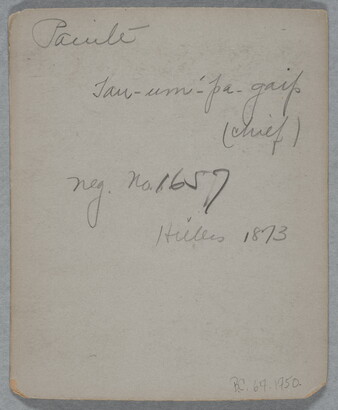 Paiute
Tau-um'-pa-gaip
(chief)
neg. No. 1657
Hillers 1873
PC. 64.175a